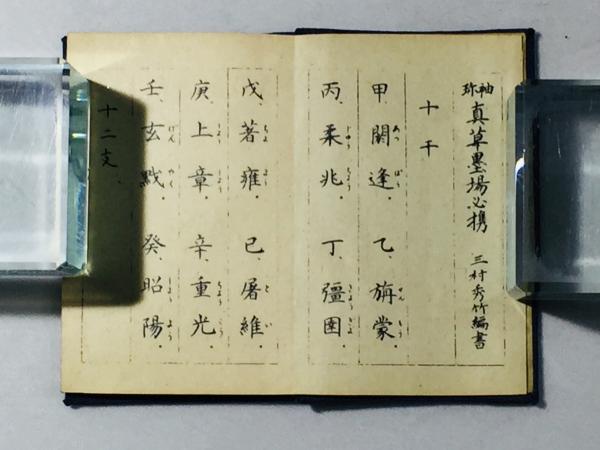 袖珎 真草墨場必携 三村秀竹編書
十干
甲閼逢、乙、旃蒙、
丙、柔兆、丁、彊圉、
戊、著雍、己、屠維、
庚、上章、辛、重光、
壬、玄黓、癸、昭陽、
十二支、